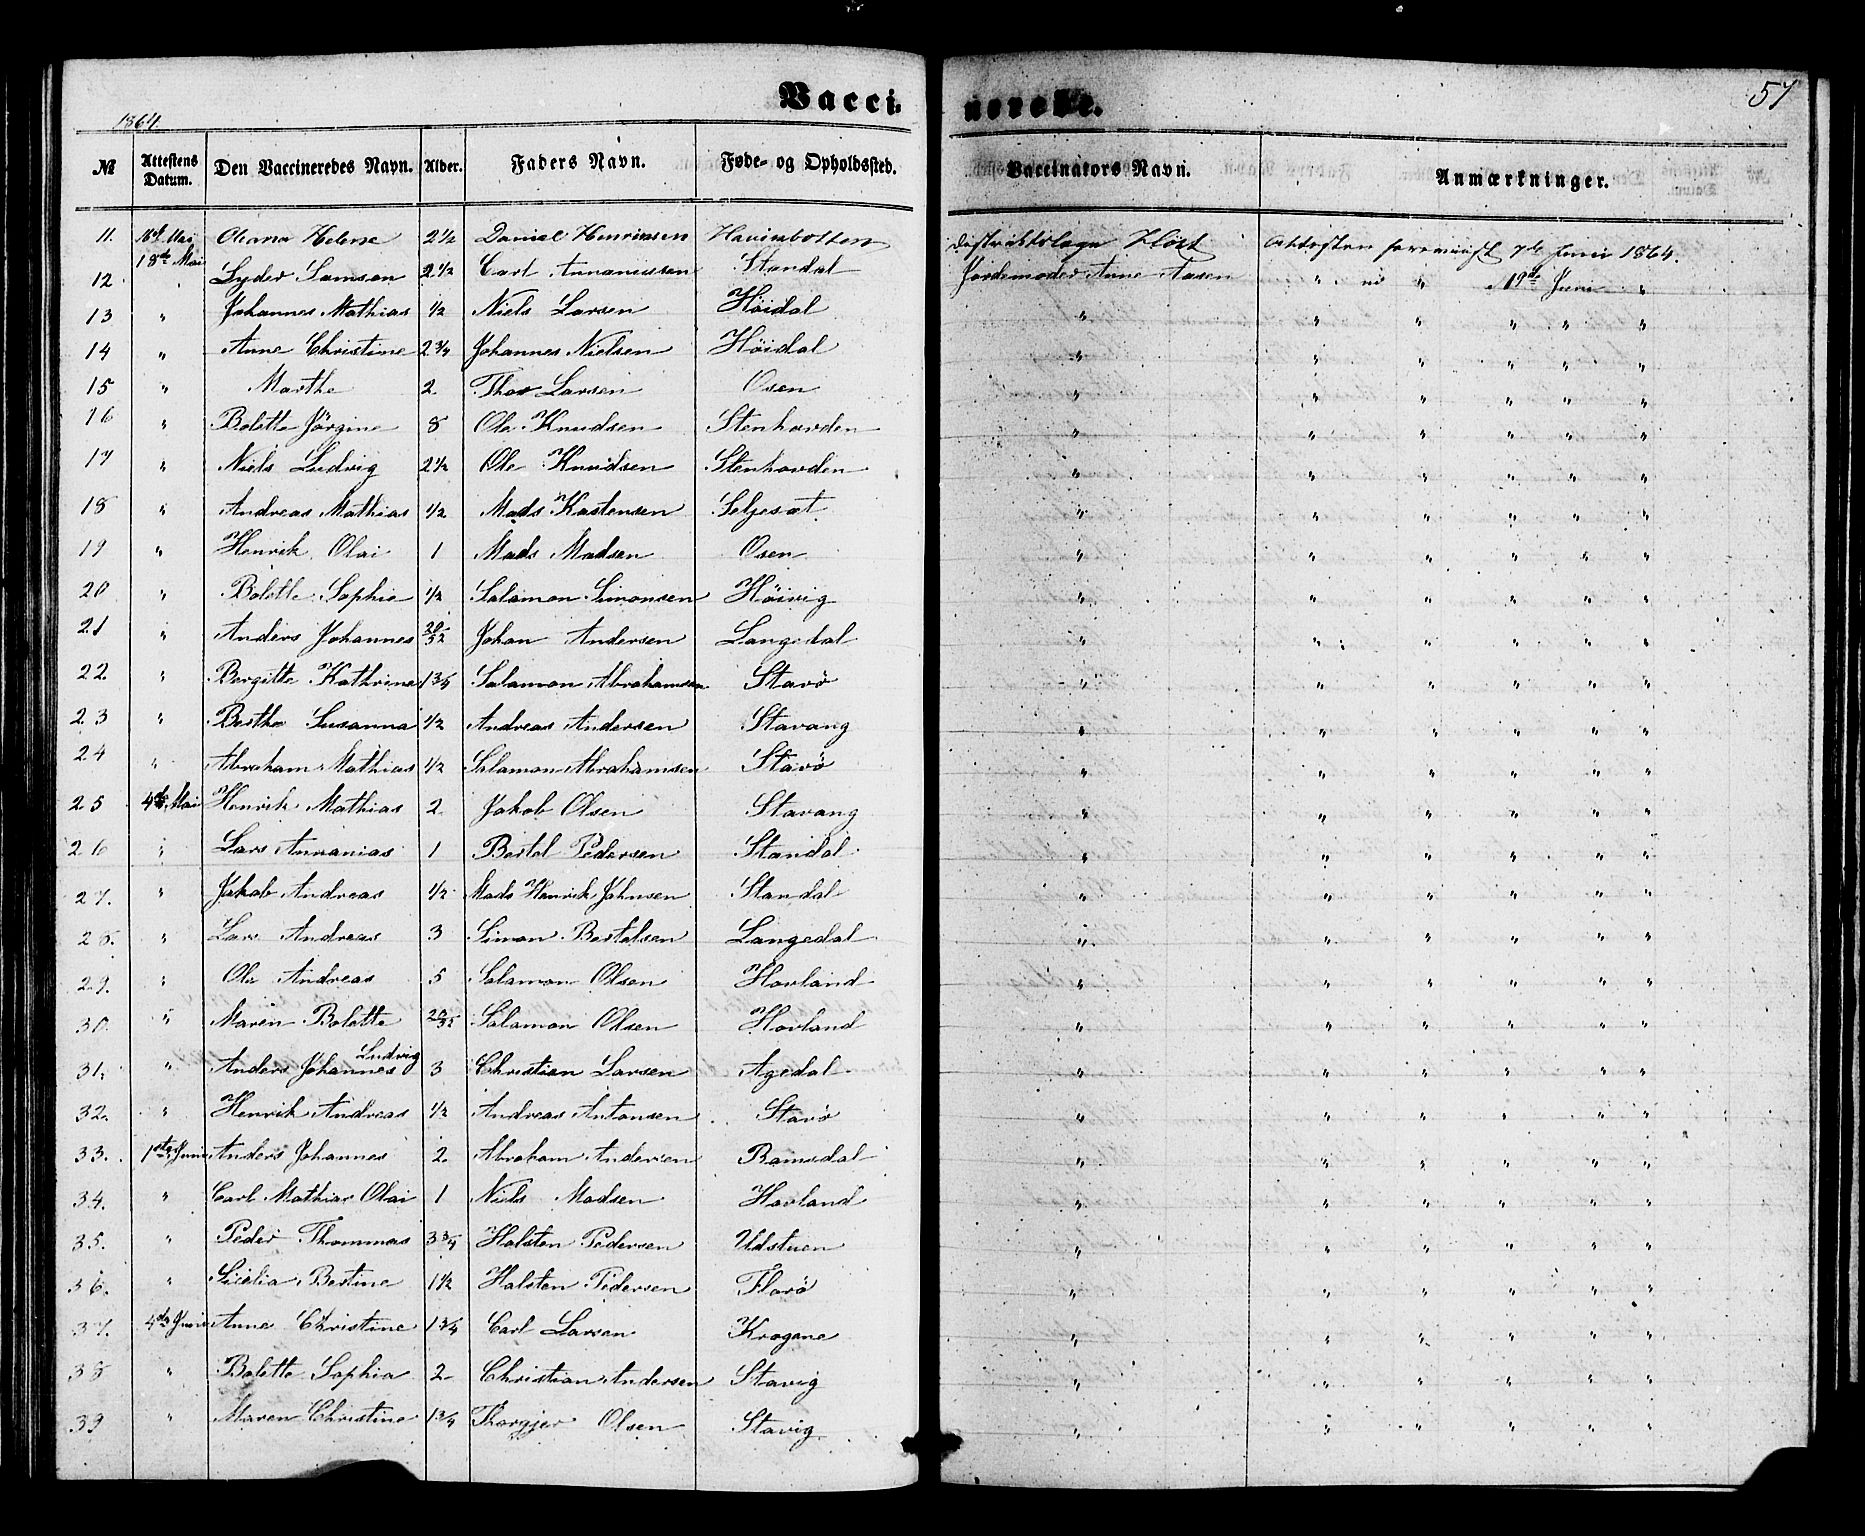 Vaccinerede.
57
1864.
№ Attestens Datum. Den Vaccineredes Navn. Alder. Faders Navn. Føde- og Opholdssted. Vaccinators Navn. Anmærkninger.
11. Mai Oleana Helene 2 1/2 Daniel Henriksen Havinbotten Distriktslæge Attesten foreviist 7de Juni 1864.
12 18de Mai Lyder Samson 2 1/2 Carl Annaniassen Standal Jordemoder Anne Aasen " " 19de Juni "
13 " Johannes Mathias 1/2 Niels Larsen Höidal " " " " " "
14 " Anne Christine 2 3/4 Johannes Nielsen Höidal " " " " " "
15 " Marthe 2 Thor Larsen Osen " " " " " "
16 " Bolette Jörgine 8 Ole Knudsen Stenhovden " " " " " "
17 " Niels Ludvig 2 1/2 Ole Knudsen Stenhovden " " " " " "
18 " Andreas Mathias 1/2 Mads Kastensen Seljesæt " " " " " "
19 " Henrik Olai 1 Mads Madsen Osen " " " " " "
20 " Bolette Sophie 1/2 Salamon Simonsen Höivig " " " " " "
21 " Anders Johannes 20/52 Johan Andersen Langedal " " " " " "
22 " Bergitte Kathrine 1 3/4 Salamon Abrahamsen Stavö " " " " " "
23 " Berthe Susanna 1/2 Andreas Andersen Stavang " " " " " "
24 " Abraham Mathias 1/2 Salamon Abrahamsen Stavö " " " " " "
25 4de Mai Henrik Mathias 2 Jakob Olsen Stavang " " " " " "
26 " Lars Annanias 1 Bertel Pedersen Standal " " " " " "
27. " Jakob Andreas 1/2 Mads Henrik Johnsen Standal " " " " " "
28. " Lars Andreas 3 Simon Bertelsen Langedal " " " " " "
29. " Ole Andreas 5 Salamon Olsen Hovland " " " " " "
30. " Maren Bolette 20/52 Salamon Olsen Hovland " " " " " "
31. " Anders Johannes Ludvig 3 Christian Larsen Agedal " " " " " "
32. " Henrik Andreas 1/2 Andreas Antonsen Stavö " " " " " "
33. 1ste Juni Anders Johannes 2 Abraham Andersen Ramsdal " " " " " "
34. " Carl Mathias Olai 1 Niels Madsen Hovland " " " " " "
35. " Peder Thommas 3 3/4 Halsten Pedersen Udstuen " " " " " "
36. " Sicelia Bertine 1 1/2 Halsten Pedersen Florö " " " " " "
37. 4de Juni Anne Christine 1 3/4 Carl Larsen Krogane " " " " " "
38 " Bolette Sophia 2 Christian Andersen Stavig " " " " " "
39 " Maren Christine 1 3/4 Thorgjer Olsen Stavig " " " " " "